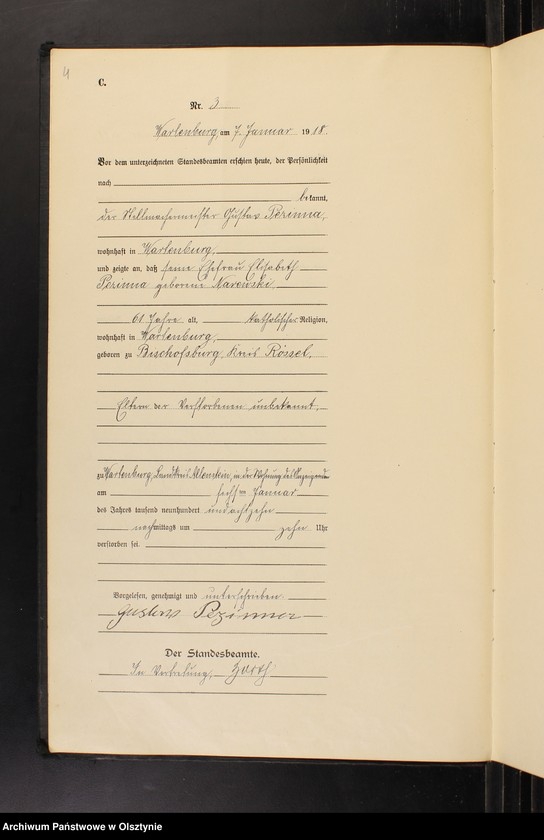 4
C.
Nr. 3
Wartenburg, am 7. Januar 1918.
Vor dem unterzeichneten Standesbeamten erschien heute, der Persönlichkeit
nach
bekannt,
der Stellmachermeister Gustav Perinna,
wohnhaft in Wartenburg,
und zeigte an, daß seine Ehefrau Elisabeth
Perinna geborene Narewski,
61 Jahre alt, katholischer Religion,
wohnhaft in Wartenburg,
geboren zu Bischofsburg, Kreis Rössel,
Eltern der Verstorbenen unbekannt,
zu Wartenburg, Landkreis Allenstein, in der Wohnung des Anzeigenden
am sechsten Januar
des Jahres tausend neunhundert und achtzehn
nachmittags um zehn Uhr
verstorben sei.
Vorgelesen, genehmigt und unterschrieben
Gustav Perinna
Der Standesbeamte.
In Vertretung,
Archiwum Państwowe w Olsztynie